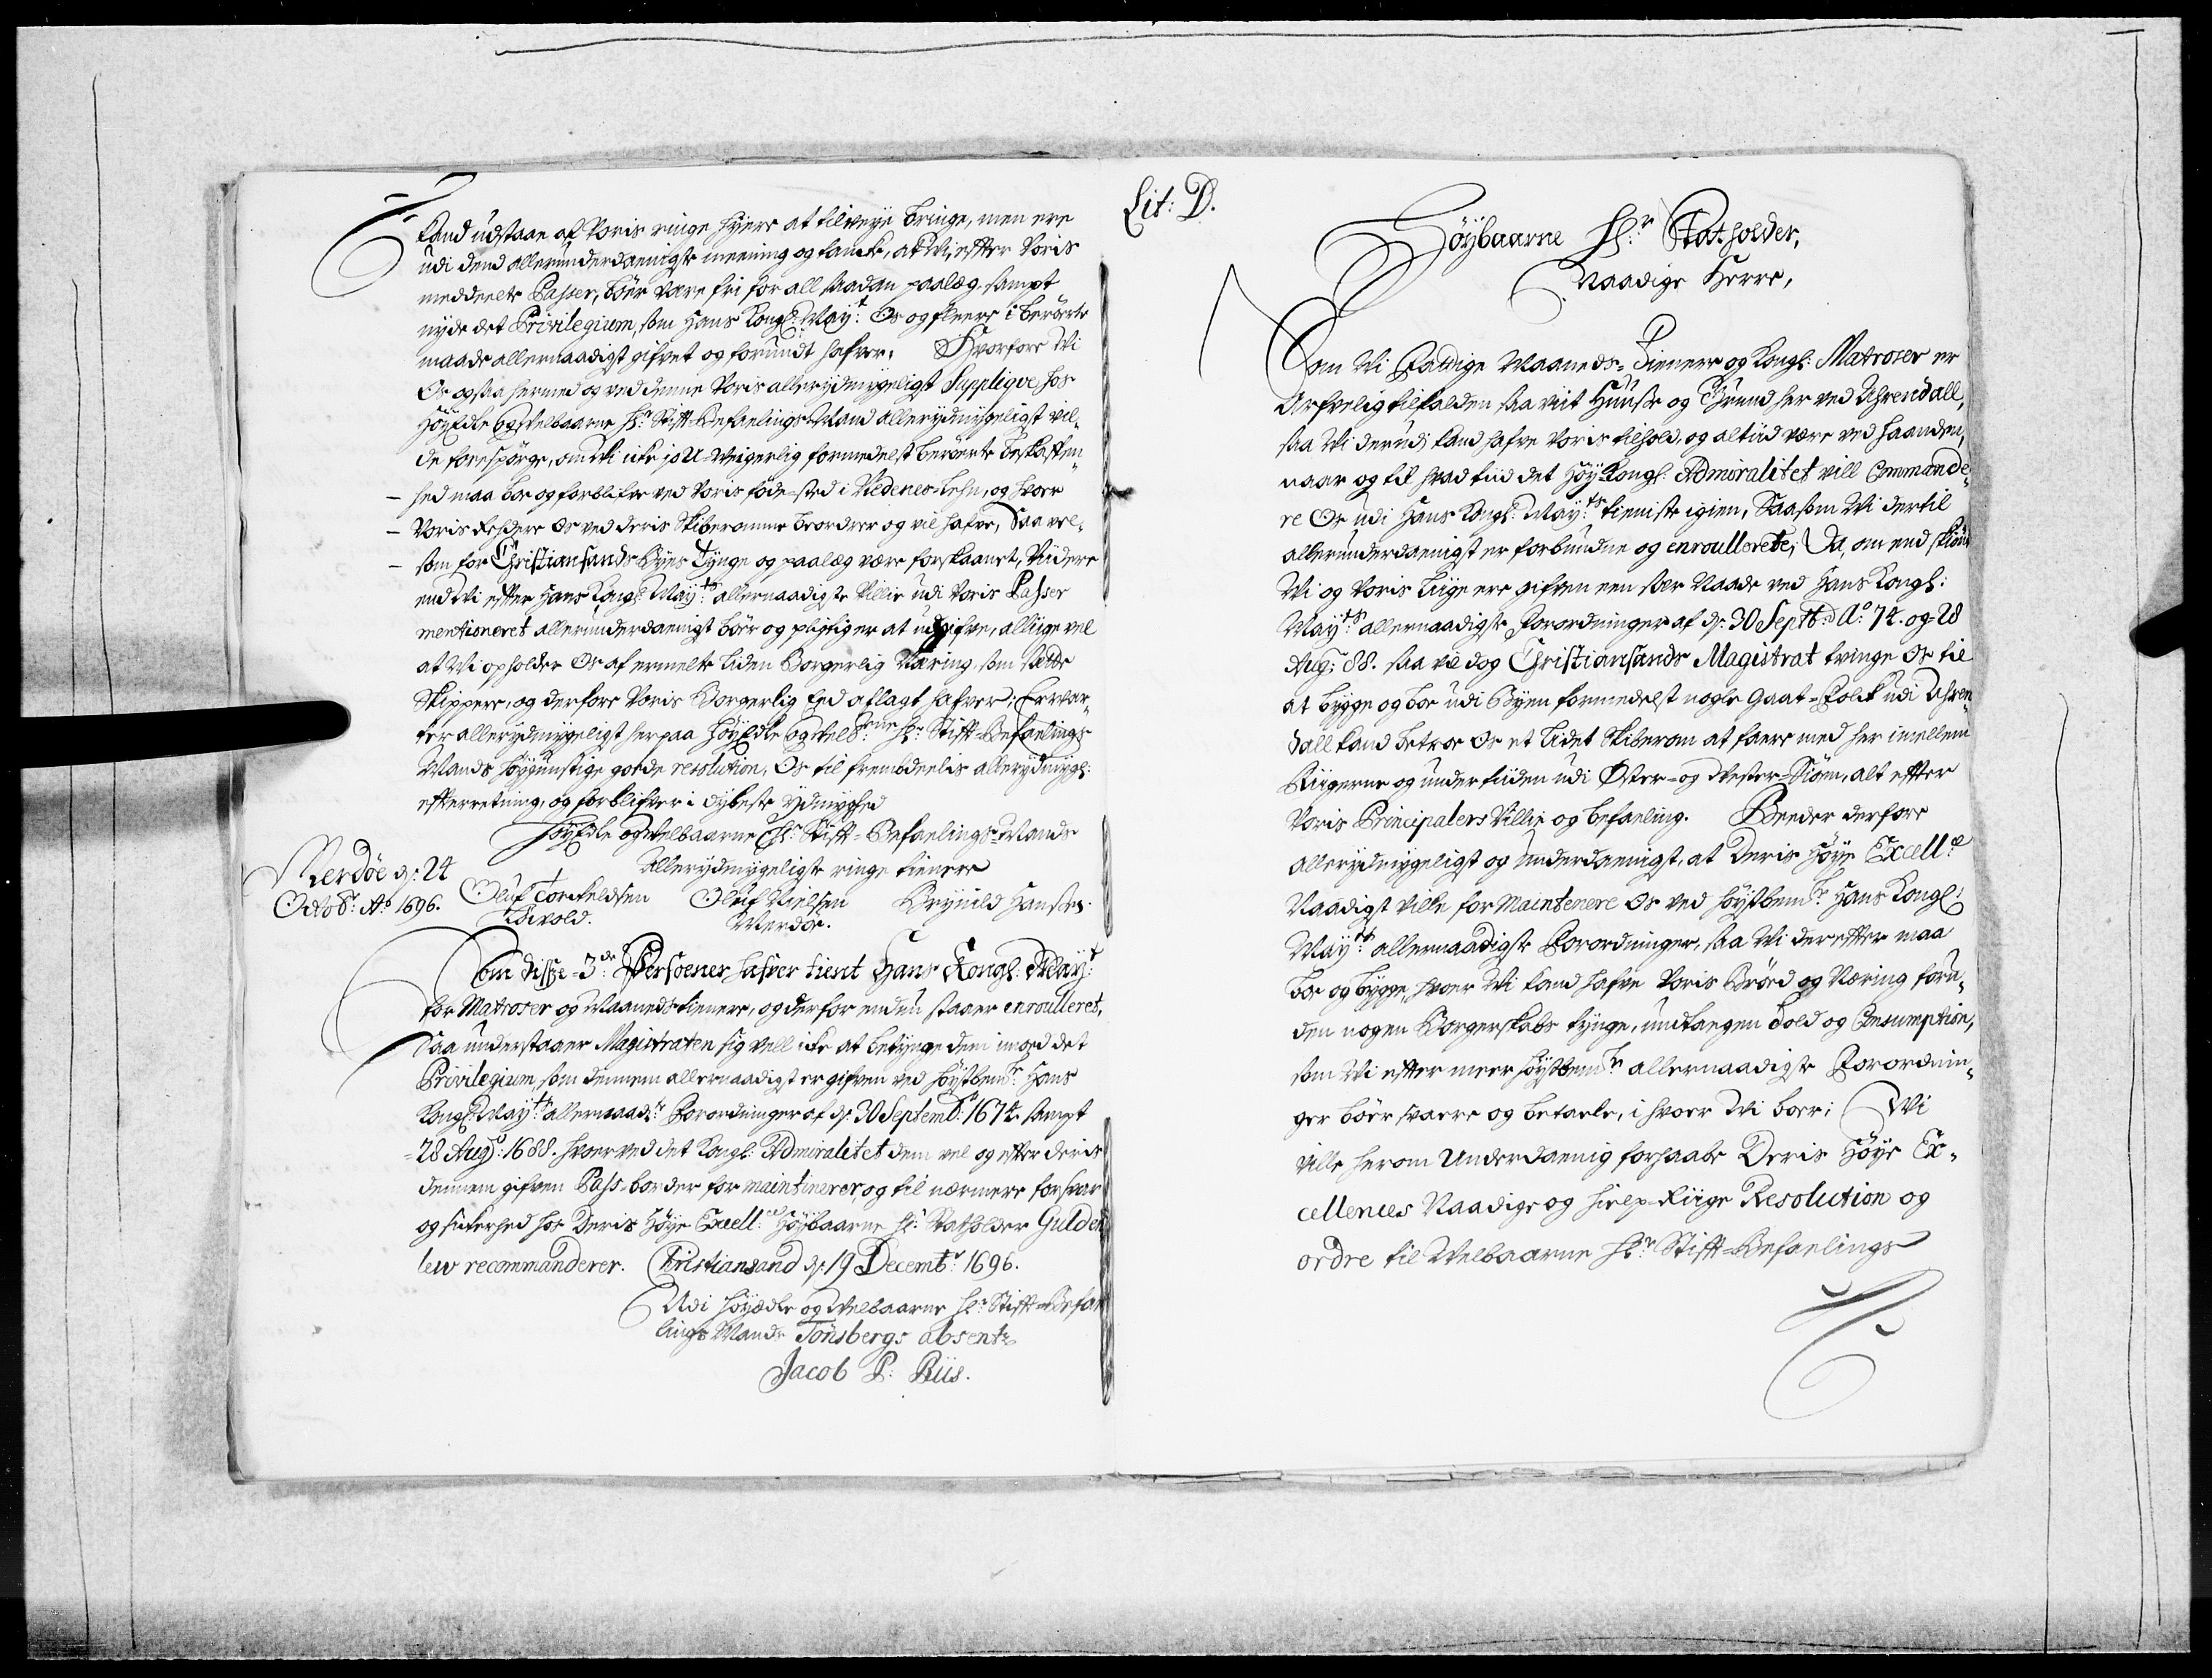 kand udstaae af Voris ringe hyere at tilveye bringe, men ere
udi dend allerunderdaenigste meening og tancke, at Wi, effter Voris
meddeelte Passer, böer være fri for all saadan paalæg, sampt
nyde det Privilegium, som Hans Kongl: May:t Os og fleere i berörte
maade allernaadigst gifvet og forundt hafver. Hvorfore Wi
Os ogsaa hermed og ved denne Voris allerydmygeligst Suppliqve hos
HöyEdle og Velbaarne Hr: Stifft-Befaelings-Mand allerydmygeligst vil-
de forespörge, om Wi icke jo U-Weigerlig formedelst berörte beskaffen-
hed maa boe og forblifve ved Voris föde-sted i Nedenes-Lehn, og hvor
Voris Rehdere Os ved deris Skiberomme beordrer og vil hafve, Saavel-
som for Christiansands Byes Tynge og paalæg være forskaanet, Viidere
end Wi effter Hans Kongl: May:ts allernaadigste Villie udi Voris Passer
mentioneret allerunderdaenigst böer og pligtig er at udgifve, alliige vel
at Wi opholder Os af ermelte liden Borgerlig Næring, som sætte
Skippere, og derfore Voris Borgerlig Eed aflagt hafver; Ervar-
ter allerydmygeligst herpaa HöyEdle og Velb:rne Hr: Stifft-Befaelings
Mands höygunstige goede resolution, Os til frembdeelis allerydmygl:
efterretning, og forblifver i dybeste ydmyghed
HöyEdle og Velbaarne Hr: Stifft-Befaelings-Mands
Allerydmygeligste ringe tienere
Merdöe d: 24
Octob:r Ao 1696.
Oluf Torckeldsen
Oluf Nielsen
Merdöe.
Brynild Hansen
Som disse 3de Persoener hafver tient Hans Kongl: May:t
for Matroser og Maanedstienere, og derfor endnu staaer enroulleret,
Saa understaaer Magistraten sig vell icke at betynge dem imod det
Privilegium, som dennem allernaadigst er gifven ved höystbem:te Hans
Kongl: May:ts allernaad:te Forordninger af d: 30 Septemb: 1674. sampt
28 Aug: 1688. hvorved det Kongl: Admiralitet dem vel og effter deris
dennem gifven Pass-border for maintinerer og til nærmere forsvar
og sickerhed hos Deris Höye Excell:ce Höybaarne Hr: Statholder Gulden
lew recommanderer. Christiansand d: 19 Decembr: 1696.
Udi Höyædle og Velbaarne Hr: Stifft-Befae
lings Mands Tönsbergs absente
Jacob P: Riis.
Lit: D.
Höybaarne Hr: Statholder,
Naadige Herre,
Som Wi Fattige Maaneds-Tienere og Kongl: Matroser er
Arfvelig tilfalden saa viit Huuse og Grund her ved Ahrendall,
saa Wi derudi kand hafve Voris tilhold, og altiid være ved haanden,
naar og til hvad tiid det Höy-Kongl: Admiralitet vill Commande-
re Os udi Hans Kongl: May:ts tieniste igien, Saasom Wi dertil
allerunderdaenigst er forbundne og enroullerete; Da, om end skiönt
Wi og Voris liige ere gifven een stor Naade ved Hans Kongl:
May:ts allernaadigste Forordninger af d: 30 Septb: Ao: 74. og 28
Aug: 88. saa vil dog Christiansands Magistrat tvinge Os til
at bygge og boe udi Byen formedelst nogle Gaat-Folck udi Ahren-
dall kand betroe Os et lidet Skiberom at faere med her imellem
Riigerne og undertiiden udi Öster- og Vester-Siöen, alt effter
Voris Principalers Villie og befaeling. Beeder derfore
allerydmygeligst og Underdaenigst, at Deris Höye Excell:ce
Naadigst ville for Maintenere Os ved höystbem:te Hans Kongl:
May:ts allernaadigste Forordninger, saa Wi dereffter maa
boe og bygge, hvor Wi kand hafve Voris Bröed og Næring foru-
den nogen Borgerskabs tynge, undtagen Told og Consumption,
som Wi effter meer höystbem:te allernaadigste Forordnin-
ger böer svaere og betaele, i hvor Wi boer; Wi
ville herom Underdaenig forhaabe Deris Höye Ex-
cellences Naadige og hielp-Riige Resolution og
ordre til Velbaarne Hr: Stifft-Befaelings